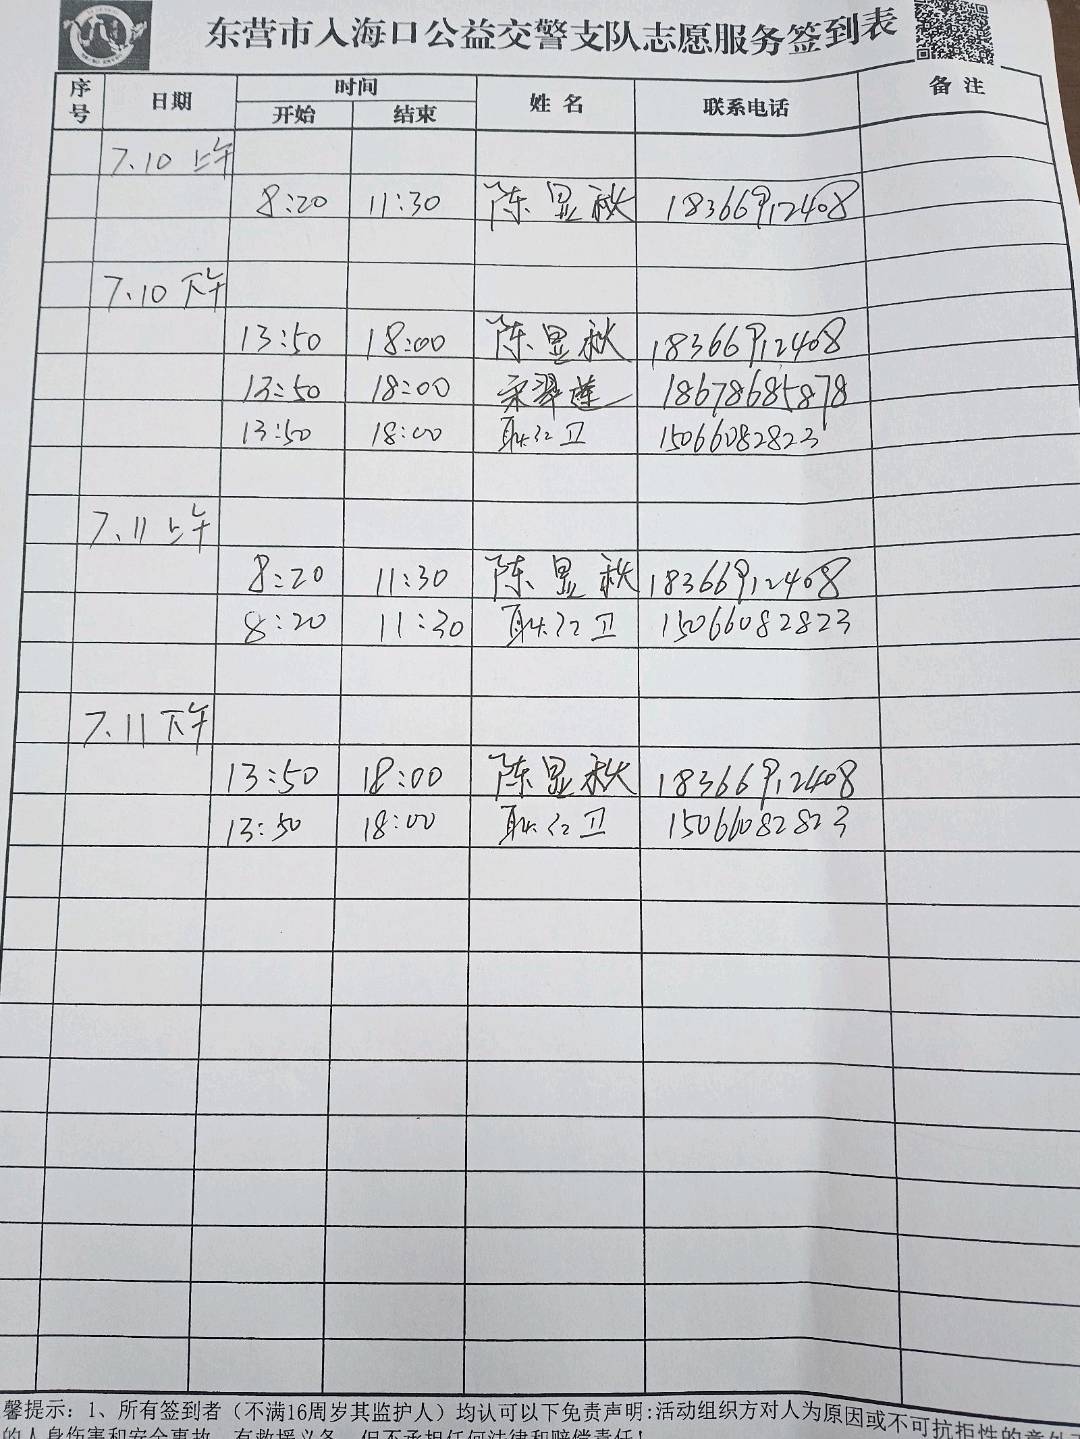 东营市入海口公益交警支队志愿服务签到表
序号 日期 时间 姓名 联系电话 备注
开始 结束
7.10 上午
8:20 11:30 陈显秋 18366912408
7.10 下午
13:50 18:00 陈显秋 18366912408
13:50 18:00 宋翠莲 18678685878
13:50 18:00 耿红卫 15066082823
7.11 上午
8:20 11:30 陈显秋 18366912408
8:20 11:30 耿红卫 15066082823
7.11 下午
13:50 18:00 陈显秋 18366912408
13:50 18:00 耿红卫 15066082823
馨提示：1、所有签到者（不满16周岁其监护人）均认可以下免责声明:活动组织方对人为原因或不可抗拒性的意外
的人身伤害和安全事故，有救援义务，但不承担任何法律和赔偿责任！